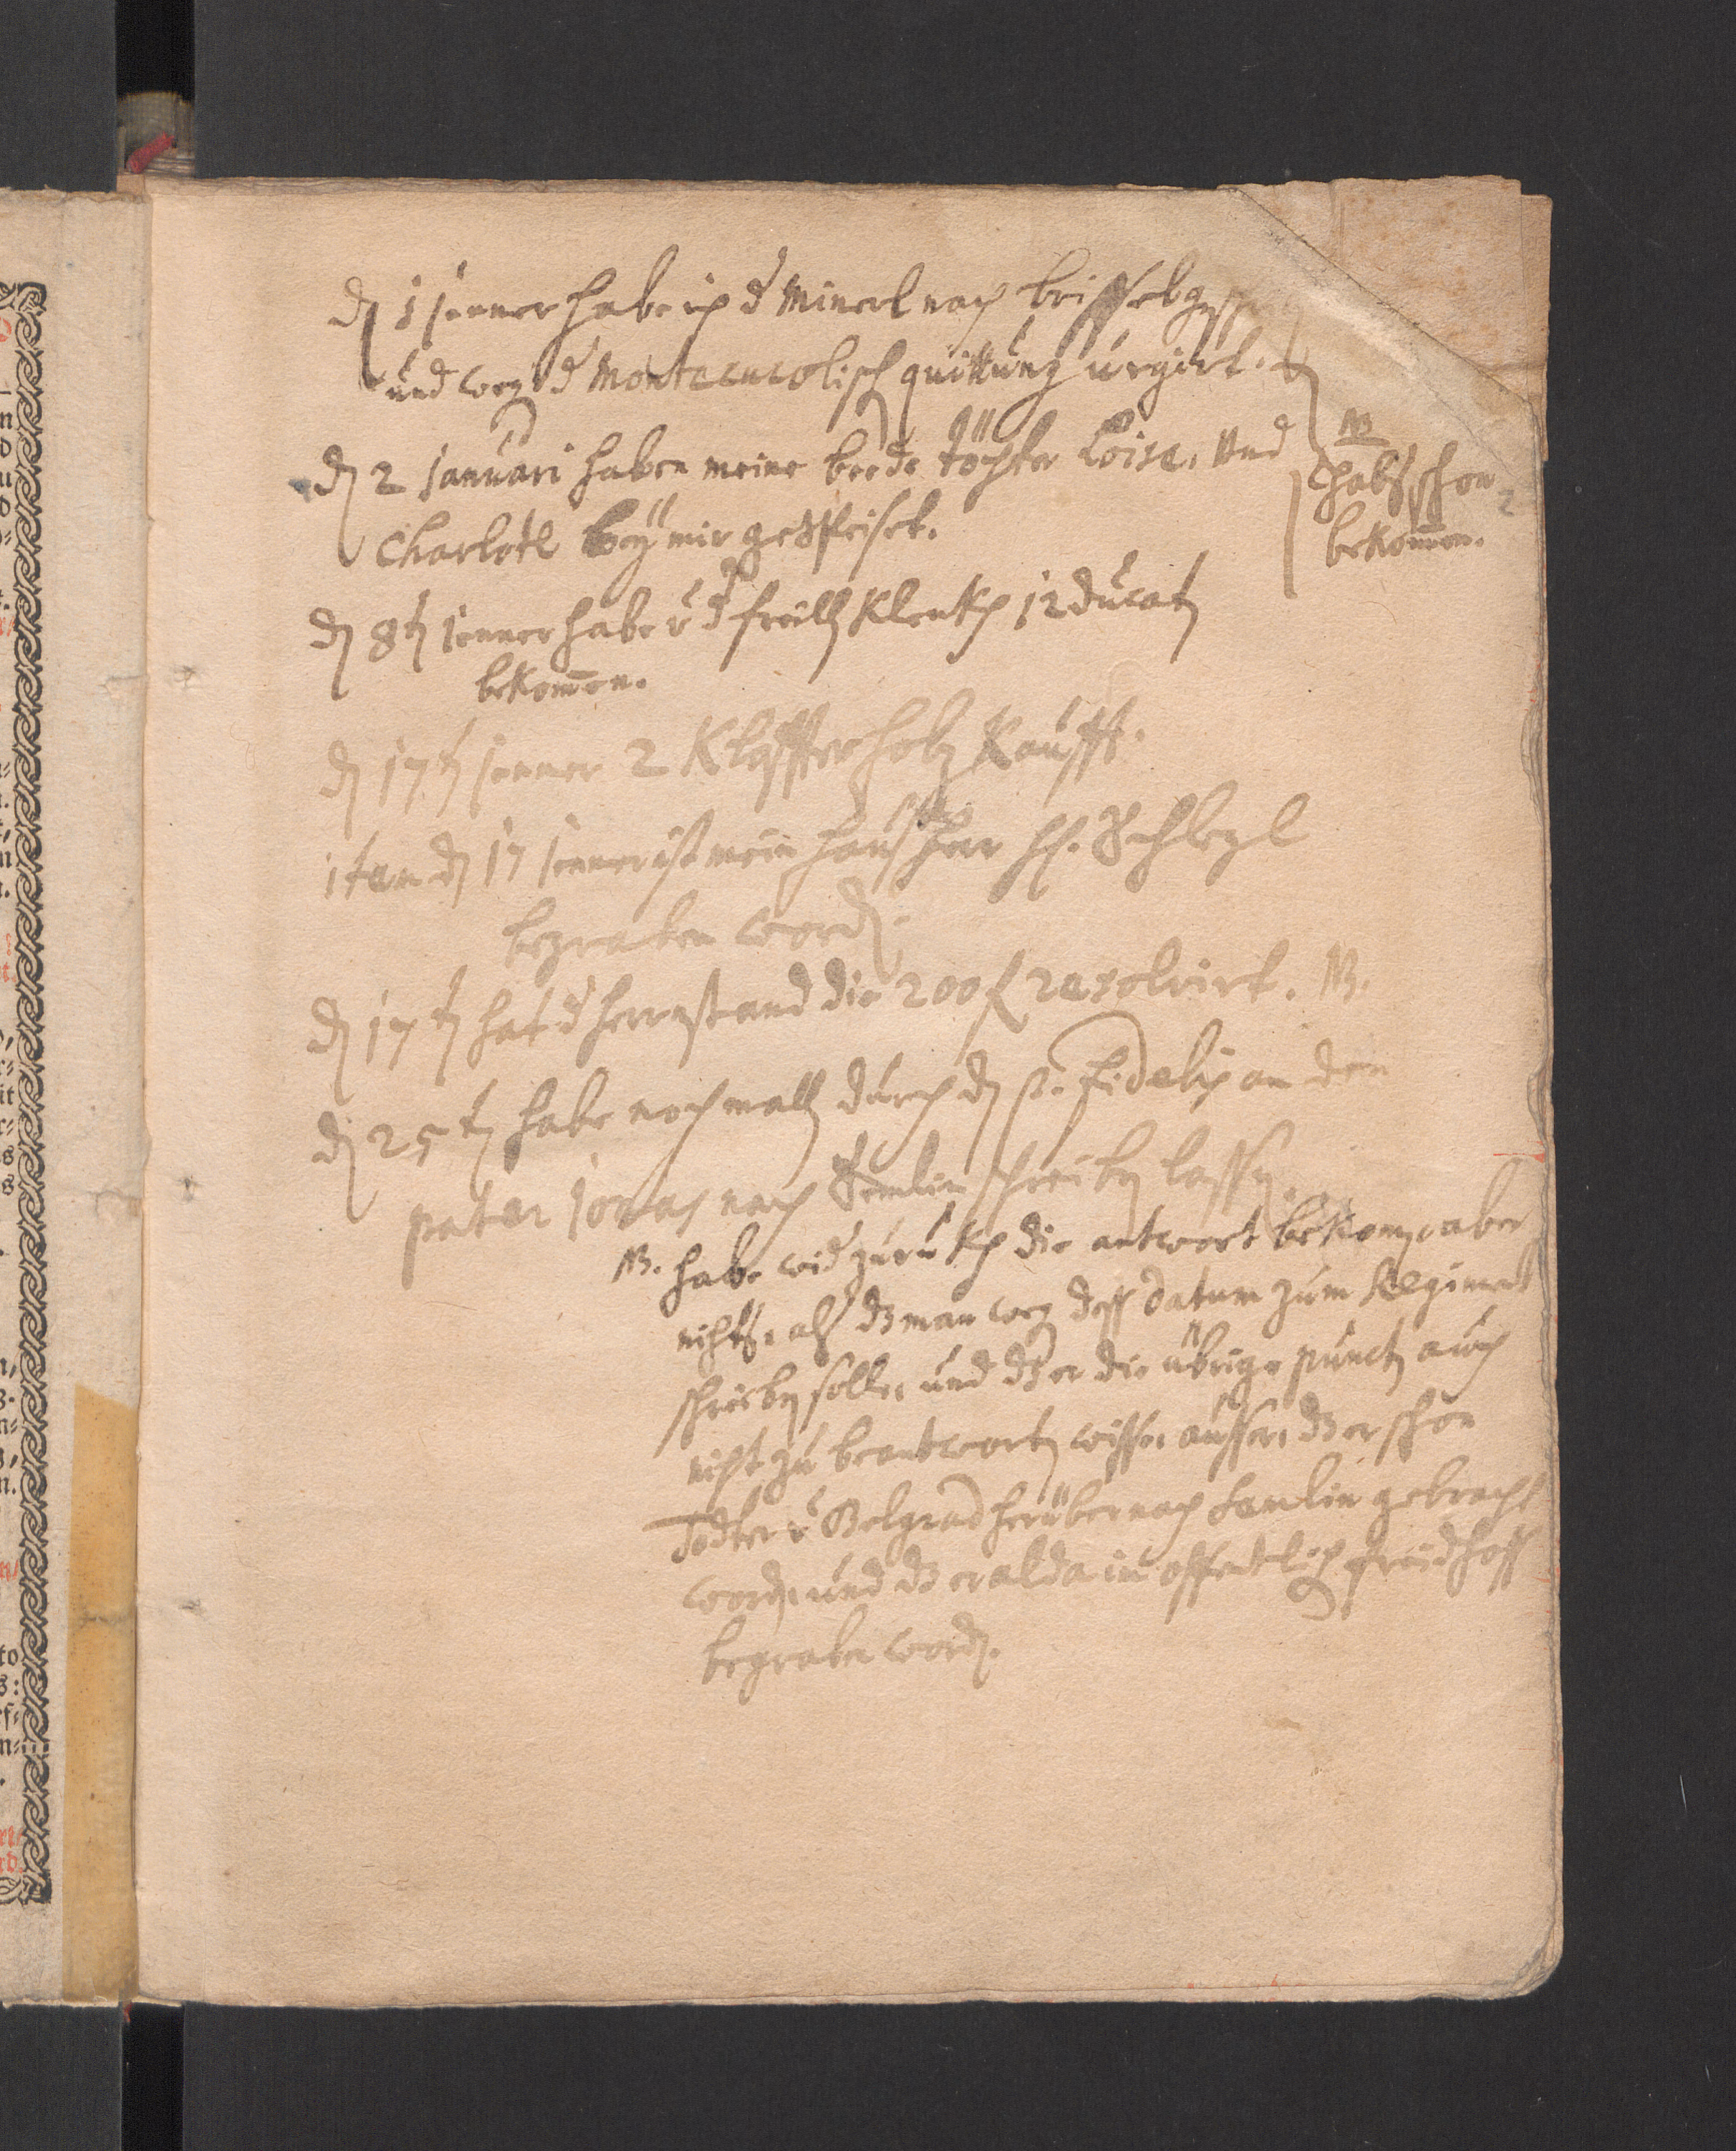 dn 1 Jenner habe ich d Minerl nach brissel
und weg d Montecucolisch quittung urgirt.
NB
habs schon
bekommen.
2
dn 2 Januari haben meine beede töchter Loisa, und
Charlotl bey mir gespeiset.
dn 8tn Jenner habe v d freill Klenkh 12 ducatn
bekommen.
dn 17tn Jenner 2 Klaffter holz Kaufft.
item dn 17 Jenner ist mein haus herr H. Schlegl
begraben wordn.
dn 17tn hat d herrnstand die 200 f resolvirt. NB.
dn 25tn habe nochmalls durch dn p. fidelis an den
pater Jonas nach Semlin schreibn lassn.
NB. habe wid zurukh die antwort bekomn, aber
nichts, als dz man weg dess datum zum Regiment
schreibn solle, und dz er die übrige punctn auch
nicht zu beantwortn wisse, ausser, dz er schon
Todter v Belgrad herüber nach Semlin gebracht
wordn, und dz er alda in offentlich freidhoff
begraben wordn.